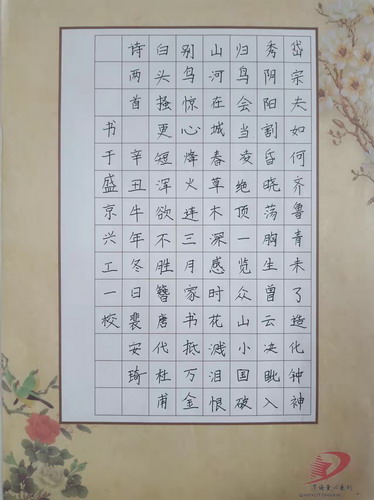 岱宗夫如何齐鲁青未了造化钟神
秀阴阳割昏晓荡胸生曾云决眦入
归鸟会当凌绝顶一览众山小国破
山河在城春草木深感时花溅泪恨
别鸟惊心烽火连三月家书抵万金
白头搔更短浑欲不胜簪唐代杜甫
诗两首 辛丑牛年冬日裴安琦
书于盛京兴工一校